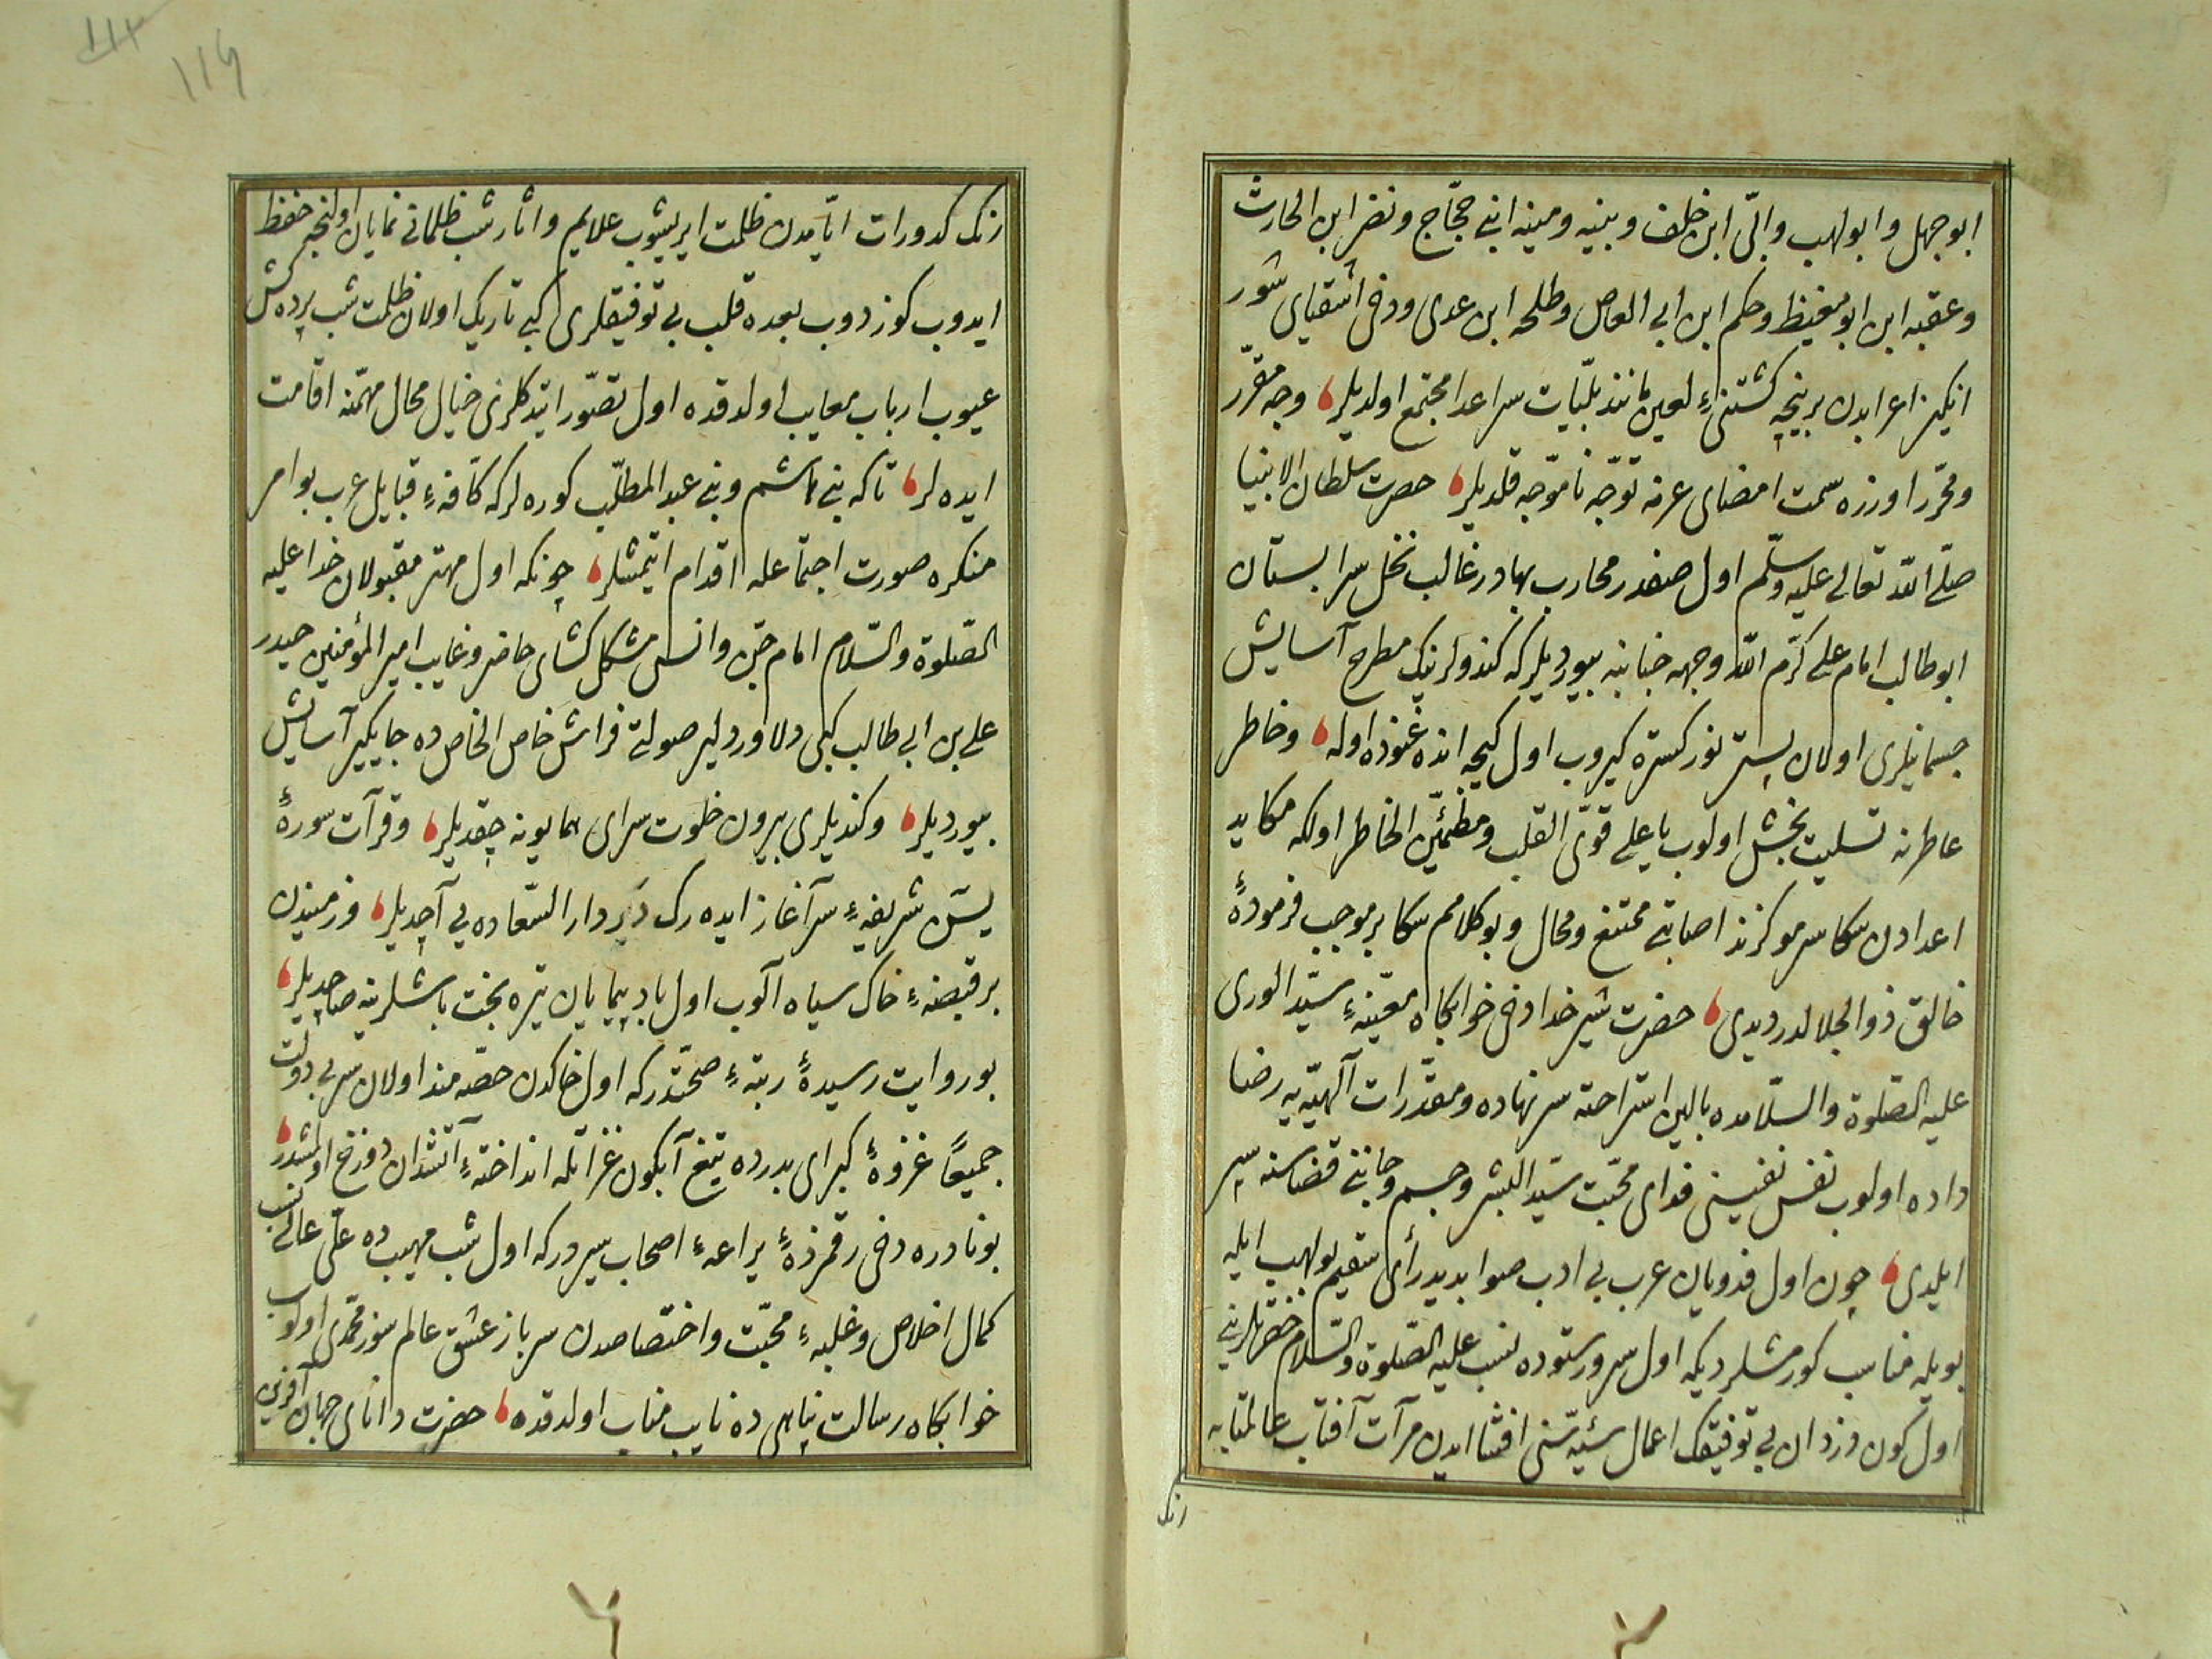 ابو جهل و ابو لهب و ابىّ ابن خلف و بنيه و منيه ابنى حجّاج و نضر ابن الحارث
و عقبه ابن ابو مغيظ و حكم ابن ابى العاص و طلحه ابن عدى و دخى اشقياى شور
انكيز اعرابدن بر نيچه كشتنىٔ لعين مانند بليّات سر اعدا مجتمع اولديلر وجه مقرّر
و محرّر اوزره سمت امضاى عزمه توجّه ناموجّه قلديلر حضرت سلطان الانبيا
صلّى الله تعالى عليه وسلّم اول صفدر محارب بهادر غالب نخل سرابستان
ابو طالب امام على كرّم الله وجهه جنابنه بيورديلر كه كندولرينك مطرح آسايش
جسمانيلرى اولان بستر نور كستره كيروب اول كيجه انده غنوده اوله و خاطر
عاطرنه تسليت بخش اولوب يا على قوىّ القلب و مطمئن الخاطر اولكه مكايد
اعدادن سكا سر مو كزند اصابتى ممتنع و محال و بو كلامم سكا بر موجب فرمودهٔ
خالق ذو الجلالدر ديدى حضرت شير خدا دخى خوابكاه معيّنهٔ سيّد الورى
عليه الصّلوة والسّلامده بالين استراحته سر نهاده و مقدّرات آلهيّه يه رضا
داده اولوب نفس نفيسنى فداى محبّت سيّد البشر و جسم و جانى قضاسنه سپر
ايلدى چون اول فدويان عرب بى ادب صوابديد رأى سقيم بولهب ايله
بويله مناسب كورمشلر ديكه اول سرور ستوده نسب عليه الصّلوة والسّلام حضرتلرينى
اول كون دزدان بى توفيقك اعمال سيّئه سنى افشا ايدن مرآت آفتاب عالمتابه
زنك
زنك كدورات ايّامدن ظلمت ايريشوب علايم و اثار شب ظلمانى نمايان اولنجه حفظ
ايدوب كوزدوب بعده قلب بى توفيقلرى كبى تاريك اولان ظلمت شب پرده كش
عيوب ارباب معايب اولدقده اول تصوّر ايتدكلرى خيال محال مهمّنه اقامت
ايده لر تا كه بنى هاشم و بنى عبد المطلّب كوره لر كه كافّهٔ قبايل عرب بو امر
منكره صورت اجتماعله اقدام ايتمشلر چونكه اول مهتر مقبولان خدا عليه
الصّلوة والسّلام امام جنّ و انس مشكل كشاى حاضر و غايب امير المؤمنين حيدر
على بن ابى طالب كبى دلاور دلير صولتى فراش خاص الخاص ده جايكير آسايش
بيورديلر و كنديلرى بيرون خلوت سراى همايونه چقديلر و قرآت سورهٔ
يسٓ شريفهٔ سر آغاز ايده رك در دار السّعاده يى آچديلر و زمينون
بر قبضهٔ خاك سياه آلوب اول باد پيمايان تيره بخت باشلرينه صاچديلر
بو روايت رسيدهٔ رتبهٔ صحّتدر كه اول خاكدن حصّه مند اولان سر بى دولت
جميعًا غزوهٔ كبراى بدرده تيغ آبكون غزاتله انداختهٔ آتشدان دوزخ اولمشدر
بو نادره دخى رقمزدهٔ يراعهٔ اصحاب سيرور كه اول شب مهيب ده علىّ عالى نسب
كمال اخلاص و غلبهٔ محبّت و اختصاصدن سرباز عشق عالم سوز محمّدى اولوب
خوابكاه رسالت پناهى ده نايب مناب اولدقده حضرت داناى جهان آفرين